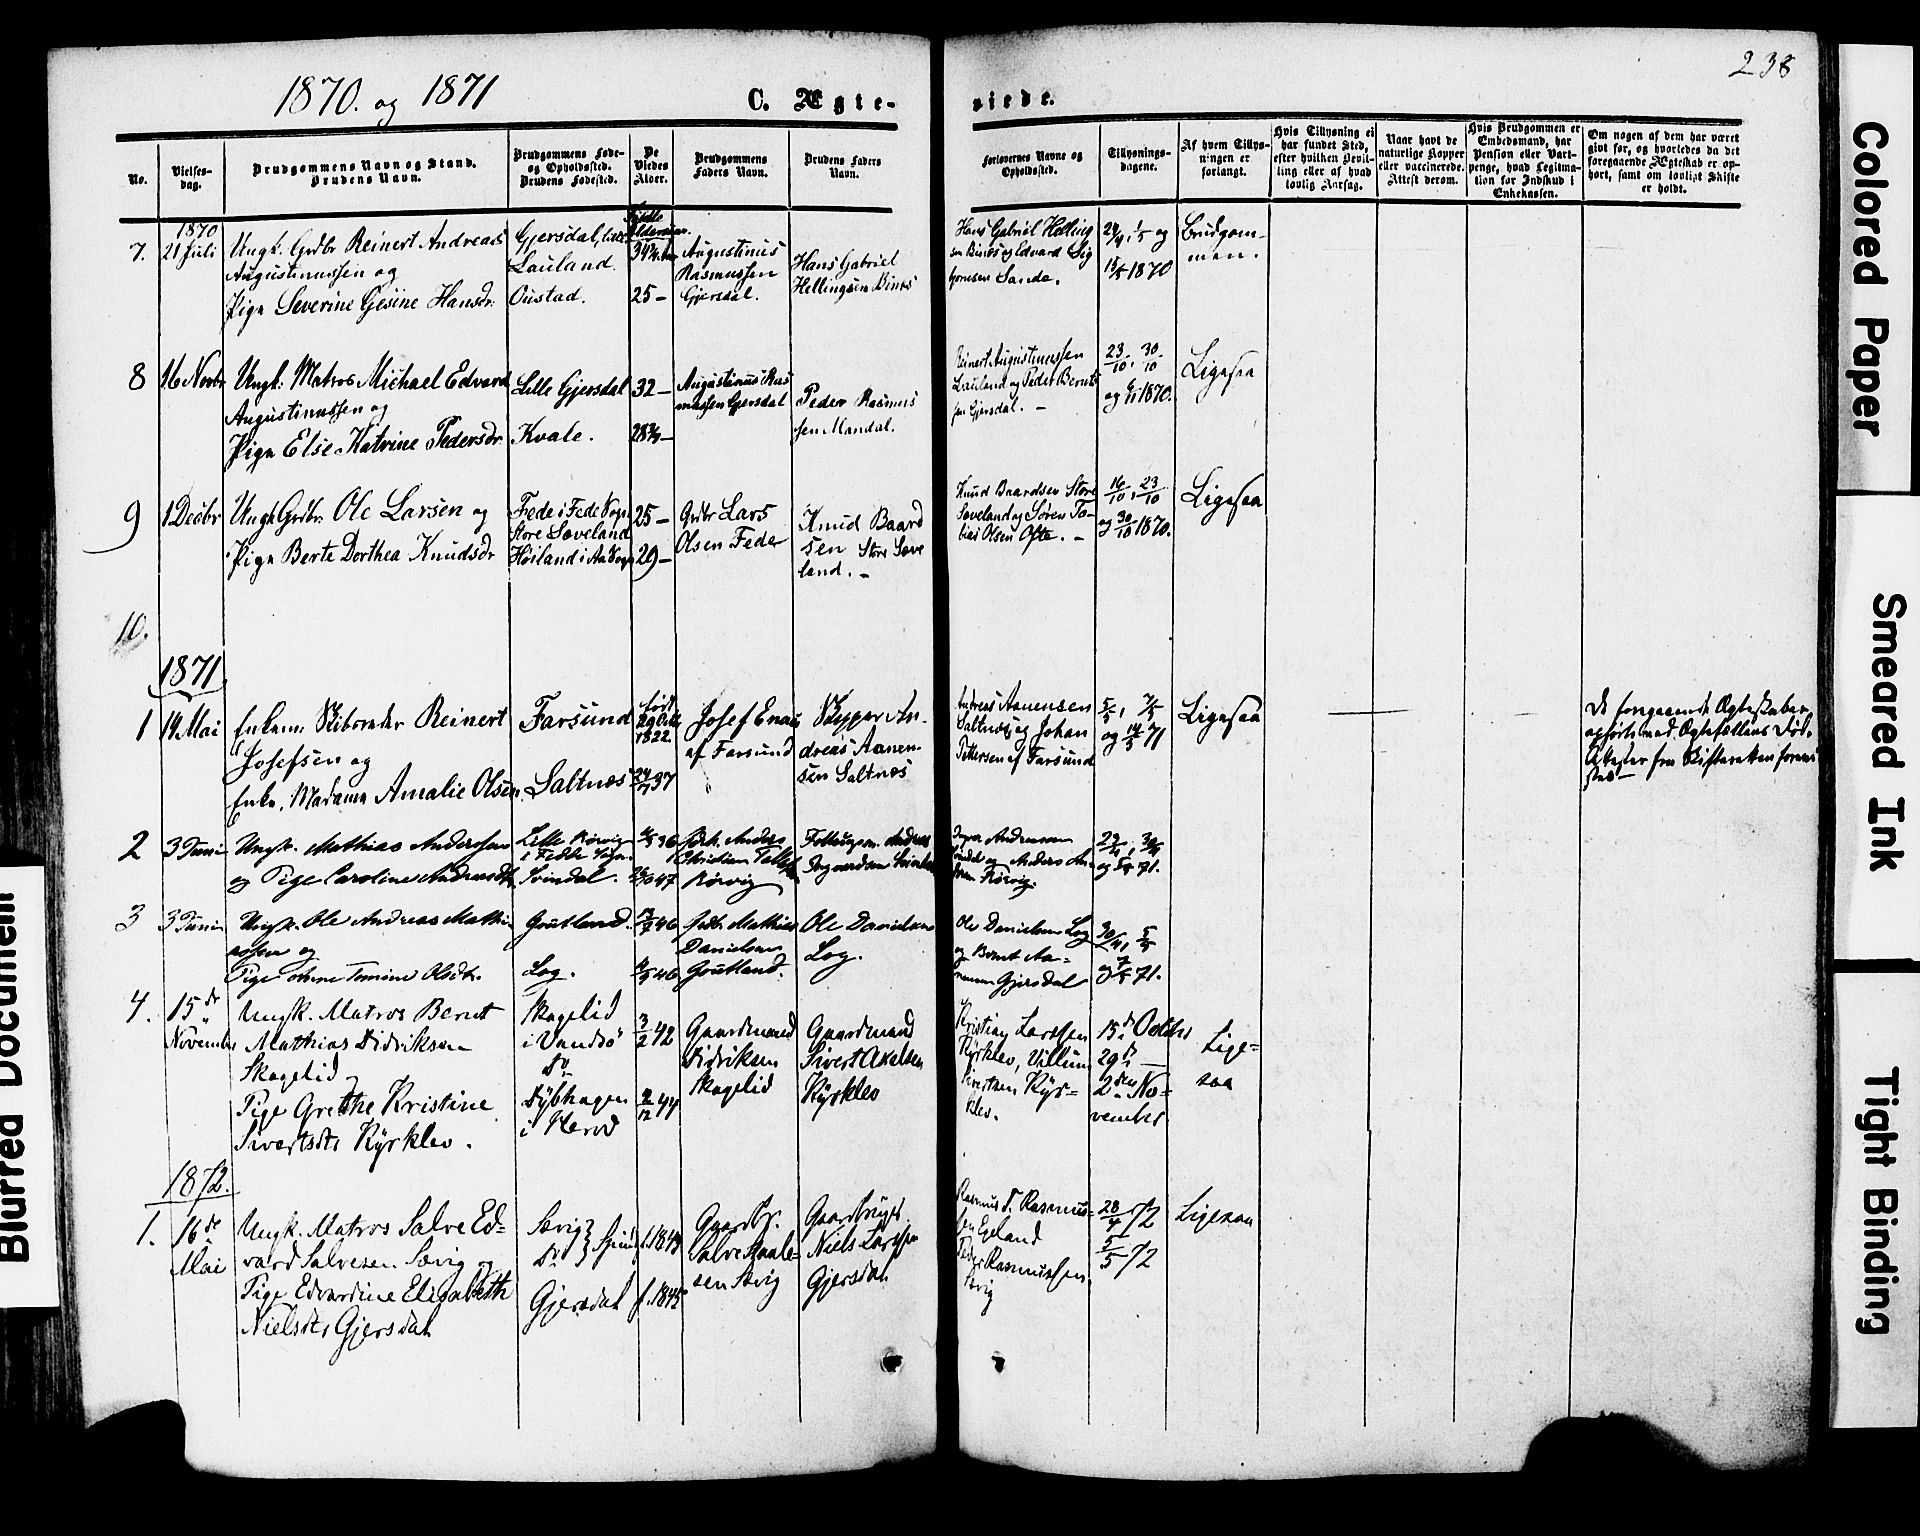 1870. og 1871
C. Ægte-
viede.
238
No.
Vielses-
dag.
Brudgommens Navn og Stand.
Brudens Navn.
Brudgommens Føde-
og Opholdssted.
Brudens Fødested.
De
Viedes
Alder.
Brudgommens
Faders Navn.
Brudens Faders
Navn.
Forlovernes Navne og
Opholdssted.
Tillysnings-
dagene.
Af hvem Tillys-
ningen er
forlangt.
Hvis Tillysning ei
har fundet Sted,
efter hvilken Bevil-
ling eller af hvad
lovlig Aarsag.
Naar havt de
naturlige Kopper
eller vaccinerede.
Attest derom.
Hvis Brudgommen er
Embedsmand, har
Pension eller Vart-
penge, hvad Legitima-
tion for Indskud i
Enkekassen.
Om nogen af dem har været
gift før, og hvorledes da det
foregaaende Ægteskab er op-
hørt, samt om lovligt Skifte
er holdt.
1870
7. 21 Juli
Ungk. Grdbr Reinert Andreas
Augustinussen og
Pige Severine Gesine Hansdr
Gjersdal, lille
Lauland.
Oustad.
25 –
Augustinus
Rasmussen
Gjersdal.
Hans Gabriel
Hellingsen Bines
Hans Gabriel Helling
sen Bines og Edvard Sig
bjørnsen Sande.
24/4, 1/5 og
15/5 1870
Brudgom-
men.
8 16 Novbr
Ungk. Matros Michael Edvard
Augustinussen og
Pige Else Katrine Pedersdr
Lille Gjersdal
Kvale.
32 –
28 3/4 –
Augustinus Ras
mussen Gjersdal
Peder Rasmus
sen Mandal.
Reinert Augustinussen
Lauland og Peder Bernt
sen Gjersdal. –
23/10, 30/10
og 6/11 1870.
Ligesaa
9 1 Decbr
Ungk Grdbr. Ole Larsen og
Pige Berte Dorthea Knudsdr
Fede i Fede Sogn
Store Sæveland
Høiland i Aa Sogn
25 –
29 –
Grdbr Lars
Olsen Feder
Knud Baard
sen Store Sæve
land. –
Knud Baardsen Store
Sæveland og Søren To-
bias Olsen Ofte. –
16/10, 23/10
og 30/10 1870.
Ligesaa
10.
1871.
1 14 Mai
Enkem. Skibsreder Reinert
Josefsen og
Enke, Madame Amalie Olsen
Farsund
Saltnæs
født
1822.
37
Josef Enas
af Farsund
Skipper An-
dreas Aanen-
sen Saltnæs
Andreas Aanensen
Saltnæs og Johan
Pettersen af Farsund
5/5, 7/5
og 14/5 71
Ligesaa
De foregaaende Ægteskaber
ophørte med Ægtefællens Død.
Attester fra Skifteretten forevi
stes –
2 3 Juni
Ungk. Mathias Anderssen
og Pige Caroline Andreasdtr
Lille Rørvig
i Fedde Sogn
Svindal.
36
47
Gdbr. Anders
Christian
Rørvig
Andreas
Ingvardsen Svindal
og Anders An
Rørvig.
og 71.
3 3 Juni
Ungk. Ole Andreas Mathi
assen og
Pige Tomine Olsdtr.
Grutland.
Log.
46
46
Gdbr. Mathias
Danielsen
Grutland.
Ole Danielsen
Log.
Ole Danielsen Log
og Bernt Aa-
nensen Gjersdal
30/4, 5/5
og 7/5 71.
4. 15de
November
Ungk. Matros Bernt
Mathias Didriksen
Skagelid
Pige Grethe Kristine
Sivertsdtr Kyrklev.
Skagelid
i Vandsø
Do
Dybhagen
i Herod
3/2 42
2/12 44
Gaardmand
Didriksen
Skagelid
Gaardmand
Sivert Axelsen
Kyrklev
Kristian Larssen
Kyrklev, Villum
Sivertsen Kyr-
klev.
15de October
29de —
2den No-
vember
Lige-
saa
1872.
1. 16de
Mai
Ungk. Matros Salve Ed-
vard Salvesen Sævig og
Pige Edvardine Elisabeth
Nielsdtr Gjersdal
Sævig
Do
Gjersdal
f. 1845
Gaardbr.
Salve Staale-
sen Sævig
Gaardbruger
Niels Larssen
Gjersdal
Rasmus T. Rasmus-
sen Egeland
Peder Rasmussen
Sævig
28/4 72
5/5 72
Ligesaa
Blurred Document
Colored Paper
Smeared Ink
Tight Binding